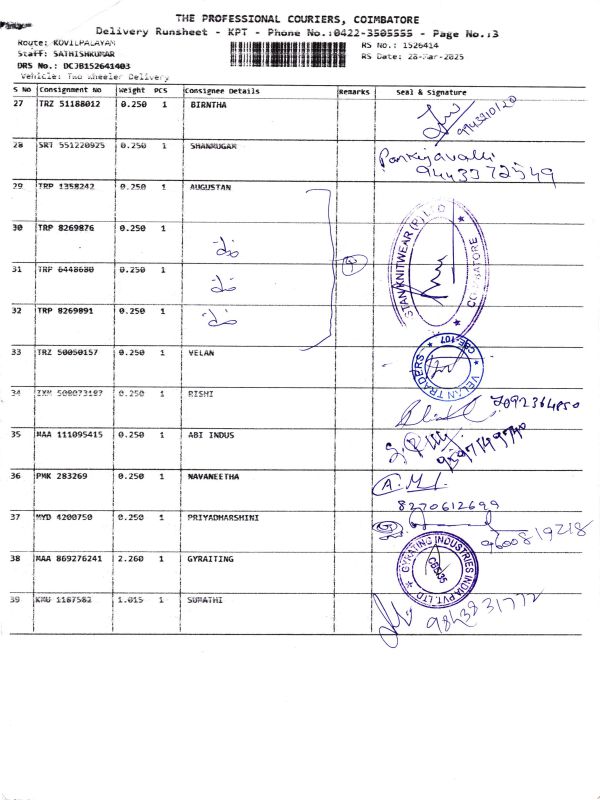 THE PROFESSIONAL COURIERS, COIMBATORE
Delivery Runsheet - KPT - Phone No.:0422-3505555 - Page No.:3
Route: KOVILPALAYAM
RS No.: 1526414
Staff: SATHISHKUMAR
RS Date: 28-Mar-2025
DRS No.: DCJB152641403
Vehicle: Two Wheeler Delivery
S No Consignment No Weight PCS Consignee Details Remarks Seal & Signature
27 TRZ 51188012 0.250 1 BIRNTHA
28 SRT 551220925 0.250 1 SHANMUGAM Pankijavalli
9443372549
29 TRP 1358242 0.250 1 AUGUSTAN
30 TRP 8269876 0.250 1
31 TRP 6448680 0.250 1
32 TRP 8269891 0.250 1
STAN KNITWEAR (P) LTD COIMBATORE
33 TRZ 50050157 0.250 1 VELAN VELAN TRADERS CBE-107
34 ZXM 508073187 0.250 1 RISHI 7092364850
35 MAA 111095415 0.250 1 ABI INDUS
36 PMK 283269 0.250 1 NAVANEETHA A.M.
8270612699
37 MYD 4200750 0.250 1 PRIYADHARSHINI 9600819218
38 MAA 869276241 2.260 1 GYRAITING GYRATING INDUSTRIES INDIA PVT. LTD CBS-35
39 KMU 1167582 1.015 1 SUMATHI 9843831772